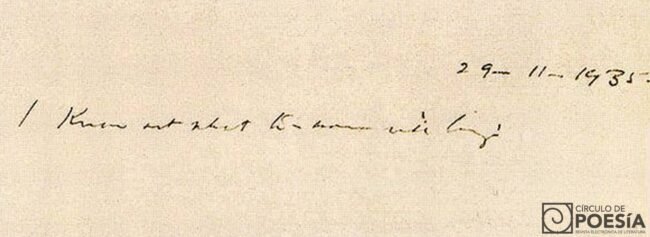 29-11-1935.
I know not what to-morrow will bring
CÍRCULO DE
POESÍA
REVISTA ELECTRÓNICA DE LITERATURA